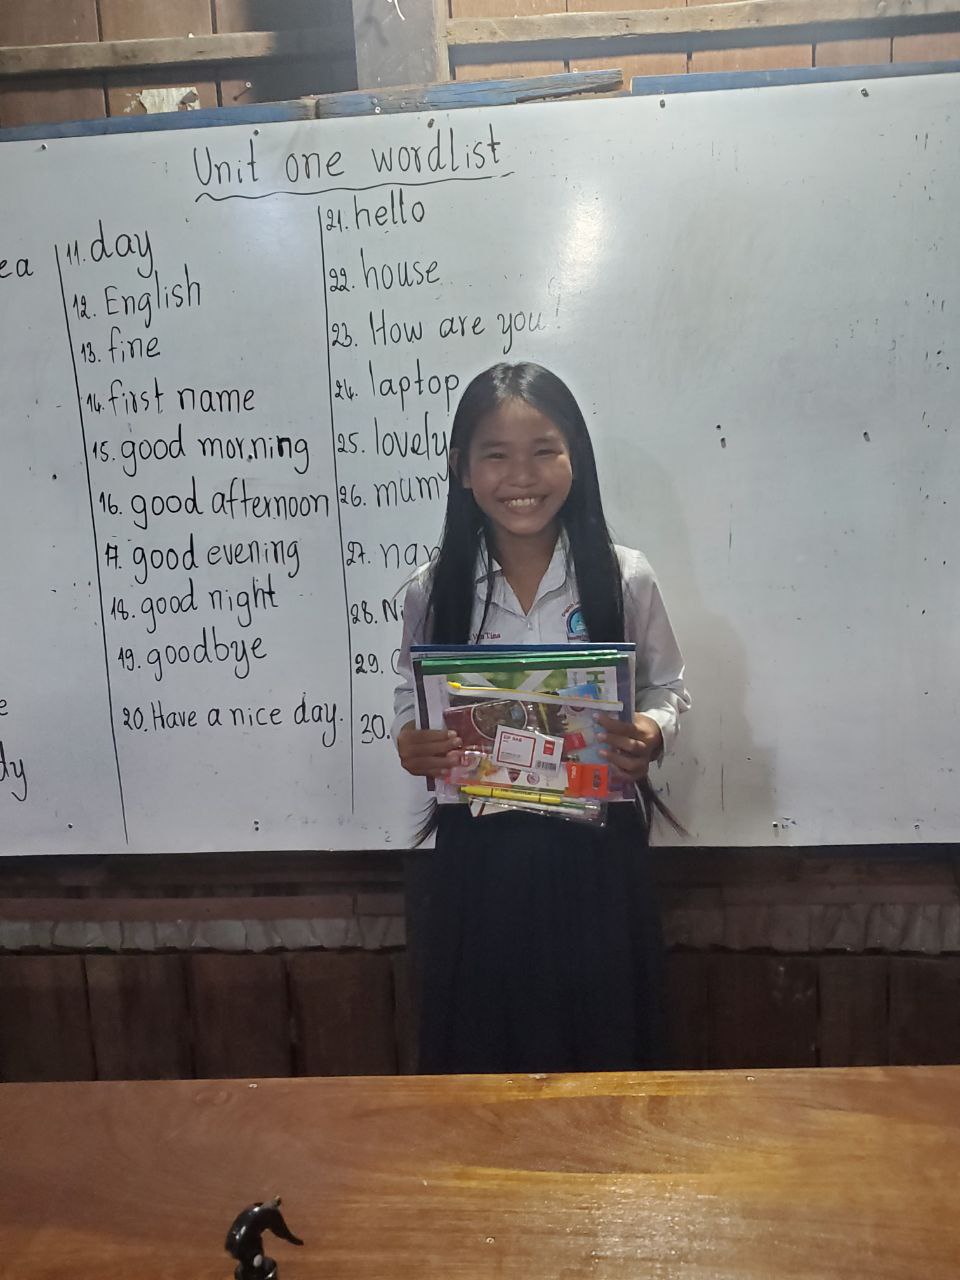 Unit one wordlist
ea
11. day
12. English
13. fine
14. first name
15. good morning
16. good afternoon
17. good evening
18. good night
19. goodbye
20. Have a nice day.
21. hello
22. house
23. How are you?
24. laptop
25. lovely
26. mum
27. nam
28. Ni
29.
30.
e
dy
Tina
ZIP BAG